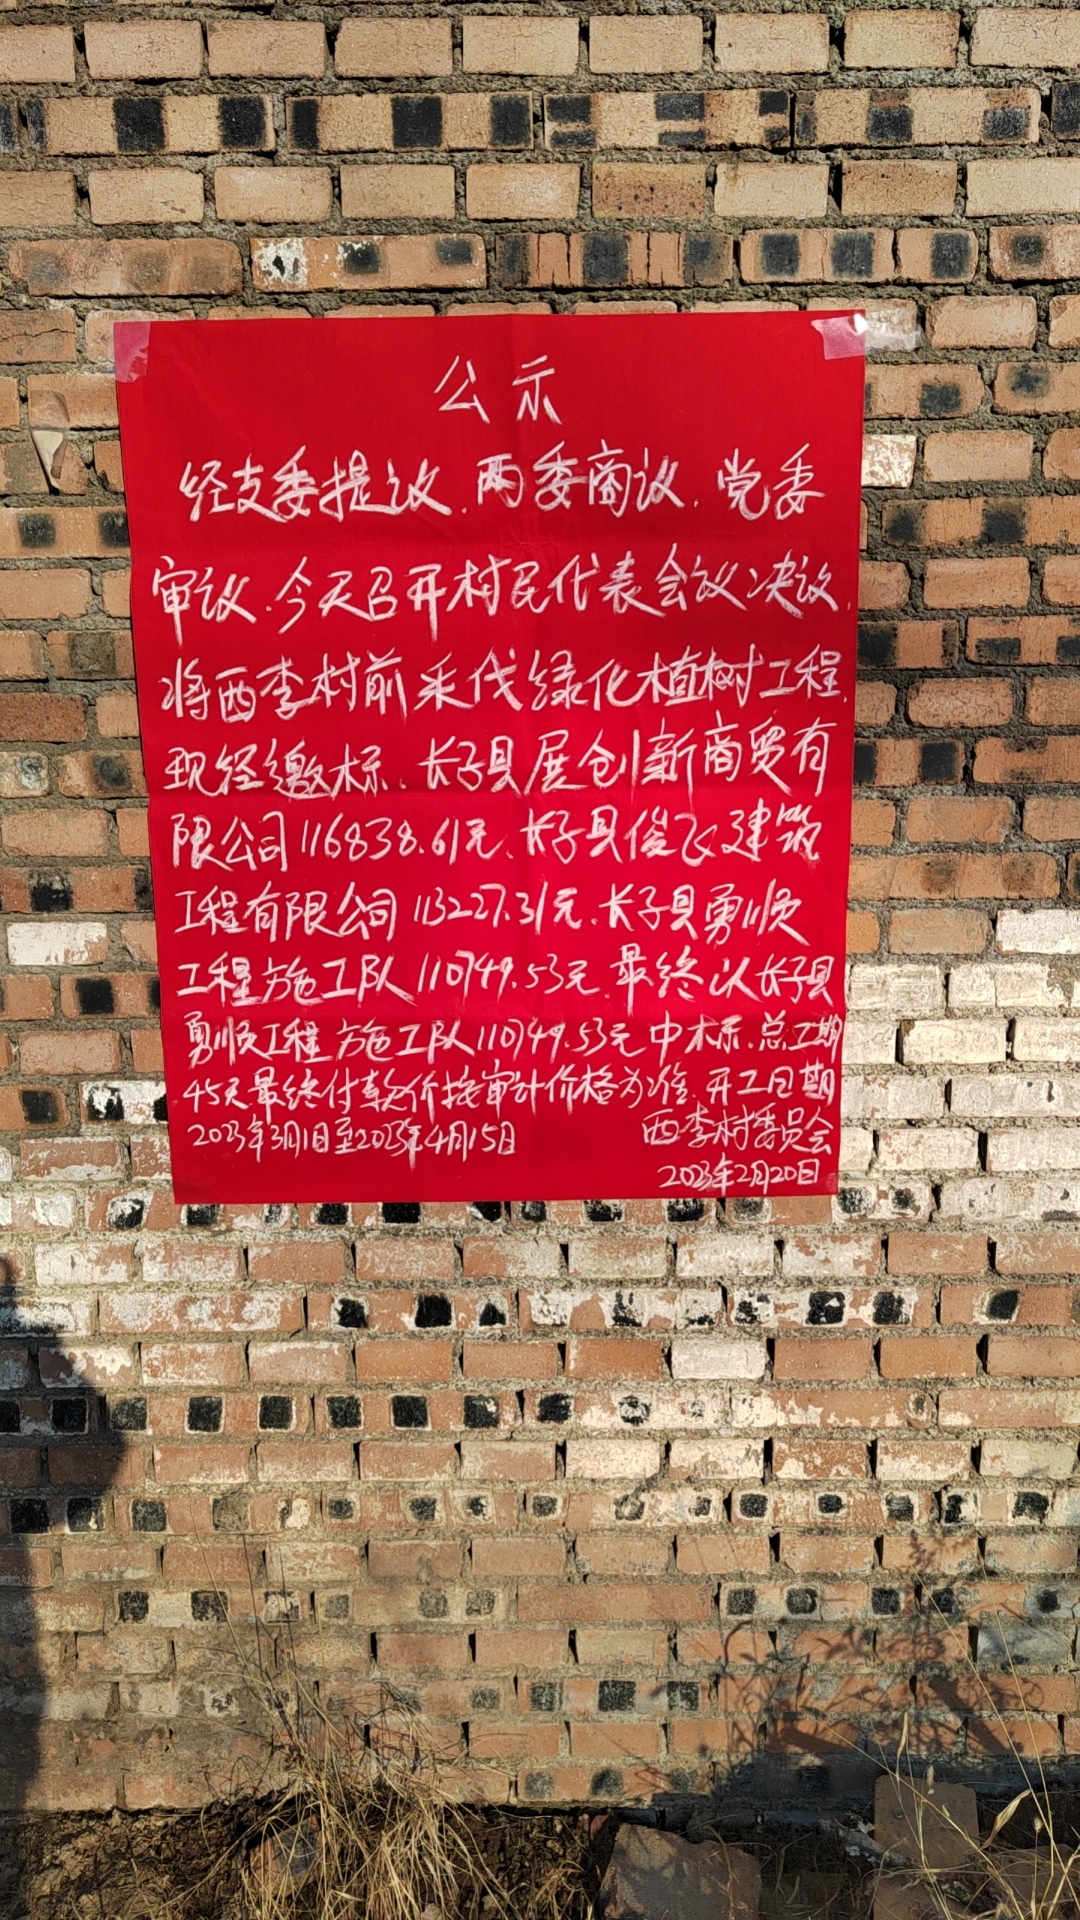 公示
经支委提议.两委商议.党委
审议.今天召开村民代表会议决议,
将西李村前采伐绿化植树工程,
现经邀标.长子县展创新商贸有
限公司116838.61元、长子县俊飞建筑
工程有限公司113227.31元.长子县勇顺
工程施工队110749.53元.最终以长子县
勇顺工程施工队110749.53元中标.总工期
45天最终付款价按审计价格为准.开工日期
2023年3月1日至2023年4月15日
西李村委员会
2023年2月20日